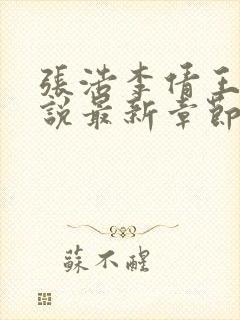 張浩李倩王
說最新章節
蘇不醒